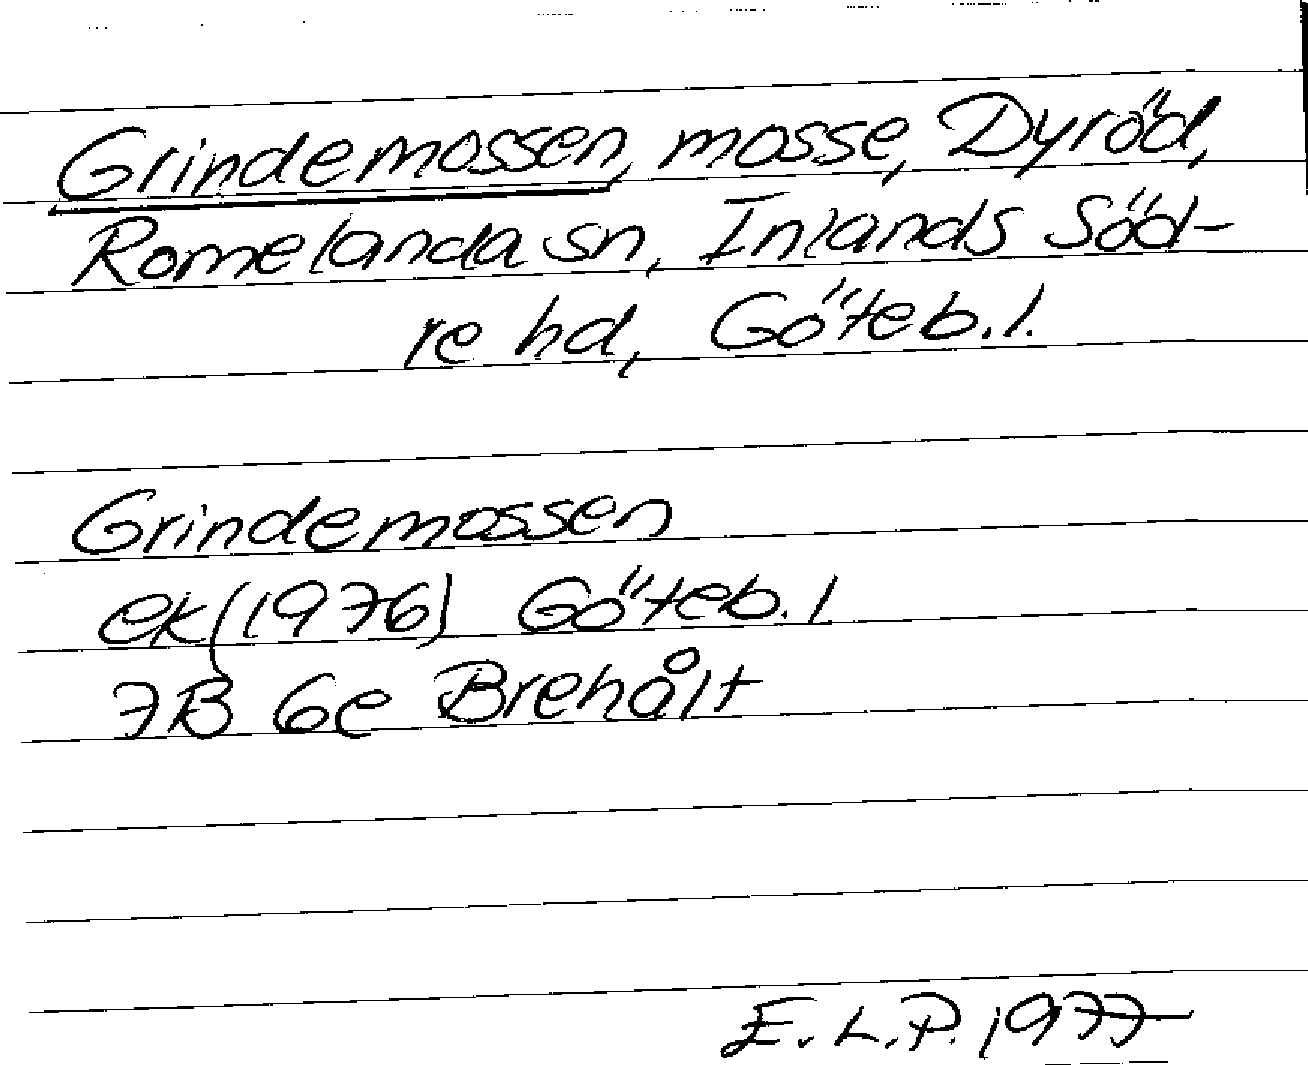 Grindemossen, mosse, Dyröd,
Romelanda sn, Inlands Söd-
re hd, Göteb.l.
Grindemossen
ek (1976) Göteb.l
7B 6e Brehålt
E.L.P. 1977